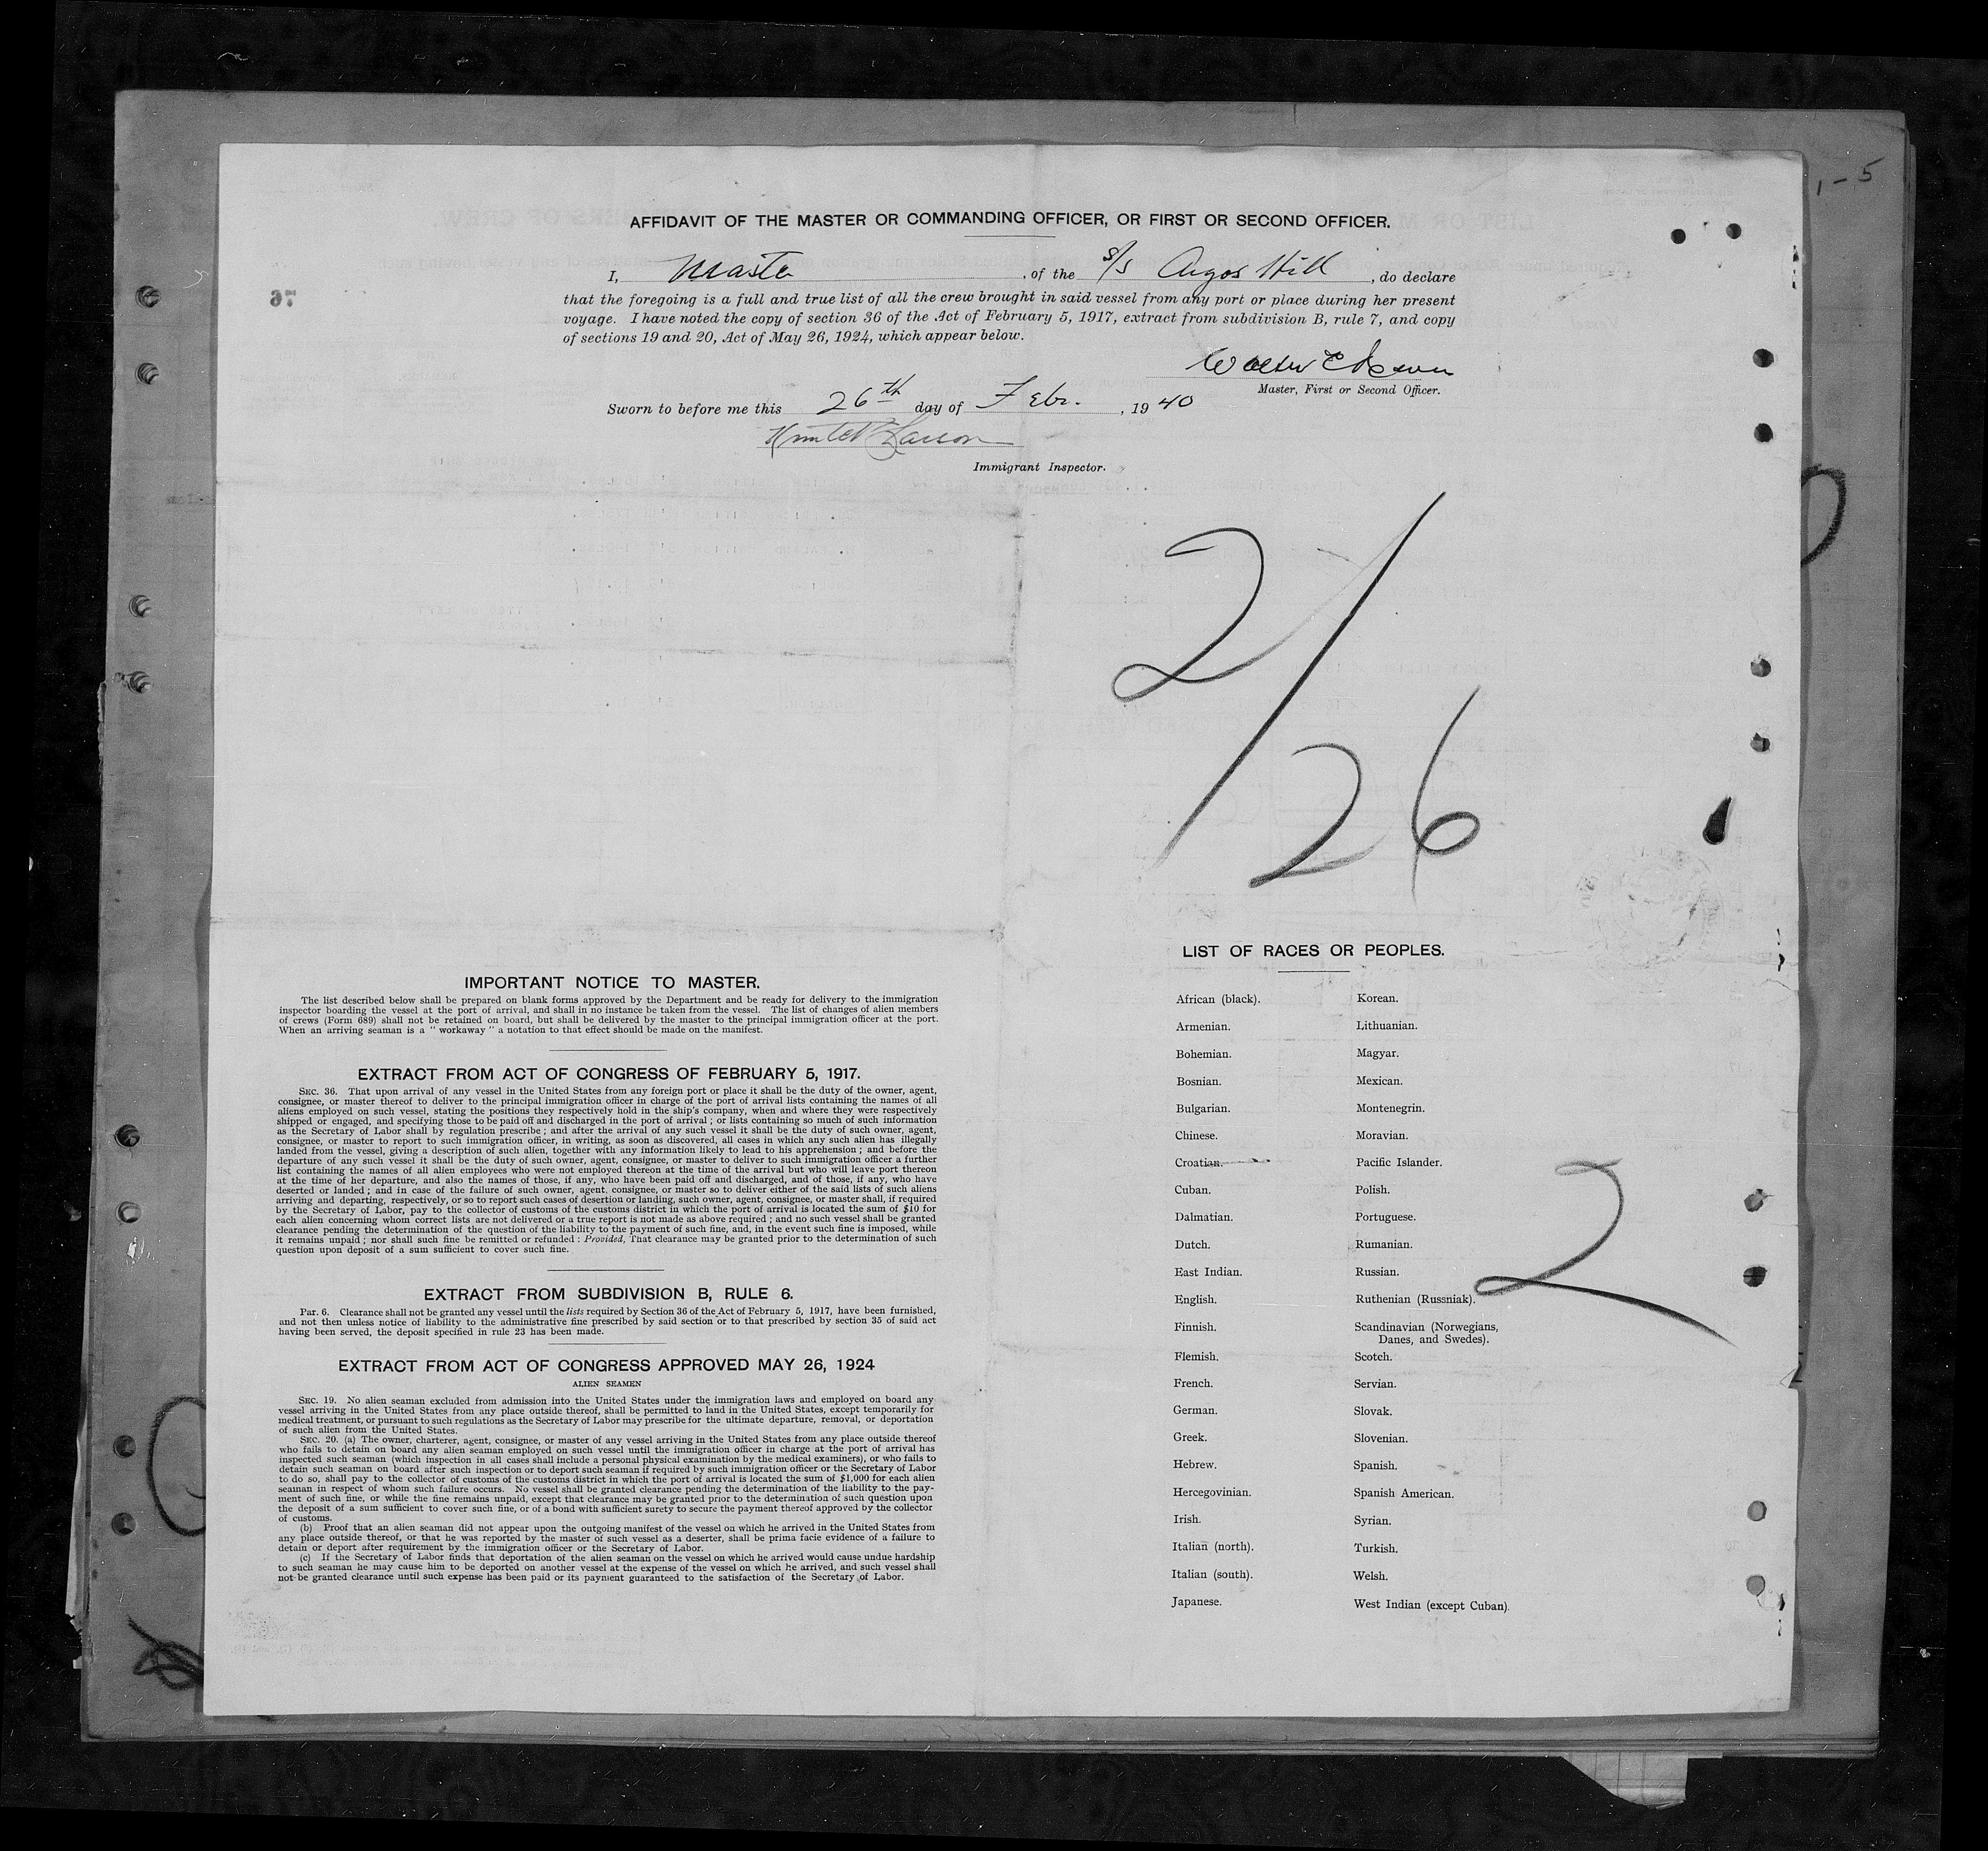 1-5
AFFIDAVIT OF THE MASTER OR COMMANDING OFFICER, OR FIRST OR SECOND OFFICER.
I, Master, of the S/S Argos Hill, do declare
that the foregoing is a full and true list of all the crew brought in said vessel from any port or place during her present
voyage. I have noted the copy of section 36 of the Act of February 5, 1917, extract from subdivision B, rule 7, and copy
of sections 19 and 20, Act of May 26, 1924, which appear below.
Walter E
Master, First or Second Officer.
Sworn to before me this 26th day of Febr., 1940
Larson
Immigrant Inspector.
2/26
IMPORTANT NOTICE TO MASTER.
The list described below shall be prepared on blank forms approved by the Department and be ready for delivery to the immigration
inspector boarding the vessel at the port of arrival, and shall in no instance be taken from the vessel. The list of changes of alien members
of crews (Form 689) shall not be retained on board, but shall be delivered by the master to the principal immigration officer at the port.
When an arriving seaman is a " workaway " a notation to that effect should be made on the manifest.
EXTRACT FROM ACT OF CONGRESS OF FEBRUARY 5, 1917.
SEC. 36. That upon arrival of any vessel in the United States from any foreign port or place it shall be the duty of the owner, agent,
consignee, or master thereof to deliver to the principal immigration officer in charge of the port of arrival lists containing the names of all
aliens employed on such vessel, stating the positions they respectively hold in the ship's company, when and where they were respectively
shipped or engaged, and specifying those to be paid off and discharged in the port of arrival ; or lists containing so much of such information
as the Secretary of Labor shall by regulation prescribe ; and after the arrival of any such vessel it shall be the duty of such owner, agent,
consignee, or master to report to such immigration officer, in writing, as soon as discovered, all cases in which any such alien has illegally
landed from the vessel, giving a description of such alien, together with any information likely to lead to his apprehension ; and before the
departure of any such vessel it shall be the duty of such owner, agent, consignee, or master to deliver to such immigration officer a further
list containing the names of all alien employees who were not employed thereon at the time of the arrival but who will leave port thereon
at the time of her departure, and also the names of those, if any, who have been paid off and discharged, and of those, if any, who have
deserted or landed ; and in case of the failure of such owner, agent, consignee, or master so to deliver either of the said lists of such aliens
arriving and departing, respectively, or so to report such cases of desertion or landing, such owner, agent, consignee, or master shall, if required
by the Secretary of Labor, pay to the collector of customs of the customs district in which the port of arrival is located the sum of $10 for
each alien concerning whom correct lists are not delivered or a true report is not made as above required ; and no such vessel shall be granted
clearance pending the determination of the question of the liability to the payment of such fine, and, in the event such fine is imposed, while
it remains unpaid ; nor shall such fine be remitted or refunded : Provided, That clearance may be granted prior to the determination of such
question upon deposit of a sum sufficient to cover such fine.
EXTRACT FROM SUBDIVISION B, RULE 6.
Par. 6. Clearance shall not be granted any vessel until the lists required by Section 36 of the Act of February 5, 1917, have been furnished,
and not then unless notice of liability to the administrative fine prescribed by said section or to that prescribed by section 35 of said act
having been served, the deposit specified in rule 23 has been made.
EXTRACT FROM ACT OF CONGRESS APPROVED MAY 26, 1924
ALIEN SEAMEN
SEC. 19. No alien seaman excluded from admission into the United States under the immigration laws and employed on board any
vessel arriving in the United States from any place outside thereof, shall be permitted to land in the United States, except temporarily for
medical treatment, or pursuant to such regulations as the Secretary of Labor may prescribe for the ultimate departure, removal, or deportation
of such alien from the United States.
SEC. 20. (a) The owner, charterer, agent, consignee, or master of any vessel arriving in the United States from any place outside thereof
who fails to detain on board any alien seaman employed on such vessel until the immigration officer in charge at the port of arrival has
inspected such seaman (which inspection in all cases shall include a personal physical examination by the medical examiners), or who fails to
detain such seaman on board after such inspection or to deport such seaman if required by such immigration officer or the Secretary of Labor
to do so, shall pay to the collector of customs of the customs district in which the port of arrival is located the sum of $1,000 for each alien
seaman in respect of whom such failure occurs. No vessel shall be granted clearance pending the determination of the liability to the pay-
ment of such fine, or while the fine remains unpaid, except that clearance may be granted prior to the determination of such question upon
the deposit of a sum sufficient to cover such fine, or of a bond with sufficient surety to secure the payment thereof approved by the collector
of customs.
(b) Proof that an alien seaman did not appear upon the outgoing manifest of the vessel on which he arrived in the United States from
any place outside thereof, or that he was reported by the master of such vessel as a deserter, shall be prima facie evidence of a failure to
detain or deport after requirement by the immigration officer or the Secretary of Labor.
(c) If the Secretary of Labor finds that deportation of the alien seaman on the vessel on which he arrived would cause undue hardship
to such seaman he may cause him to be deported on another vessel at the expense of the vessel on which he arrived, and such vessel shall
not be granted clearance until such expense has been paid or its payment guaranteed to the satisfaction of the Secretary of Labor.
LIST OF RACES OR PEOPLES.
African (black). Korean.
Armenian. Lithuanian.
Bohemian. Magyar.
Bosnian. Mexican.
Bulgarian. Montenegrin.
Chinese. Moravian.
Croatian. Pacific Islander.
Cuban. Polish.
Dalmatian. Portuguese.
Dutch. Rumanian.
East Indian. Russian.
English. Ruthenian (Russniak).
Finnish. Scandinavian (Norwegians,
Danes, and Swedes).
Flemish. Scotch.
French. Servian.
German. Slovak.
Greek. Slovenian.
Hebrew. Spanish.
Hercegovinian. Spanish American.
Irish. Syrian.
Italian (north). Turkish.
Italian (south). Welsh.
Japanese. West Indian (except Cuban).
2